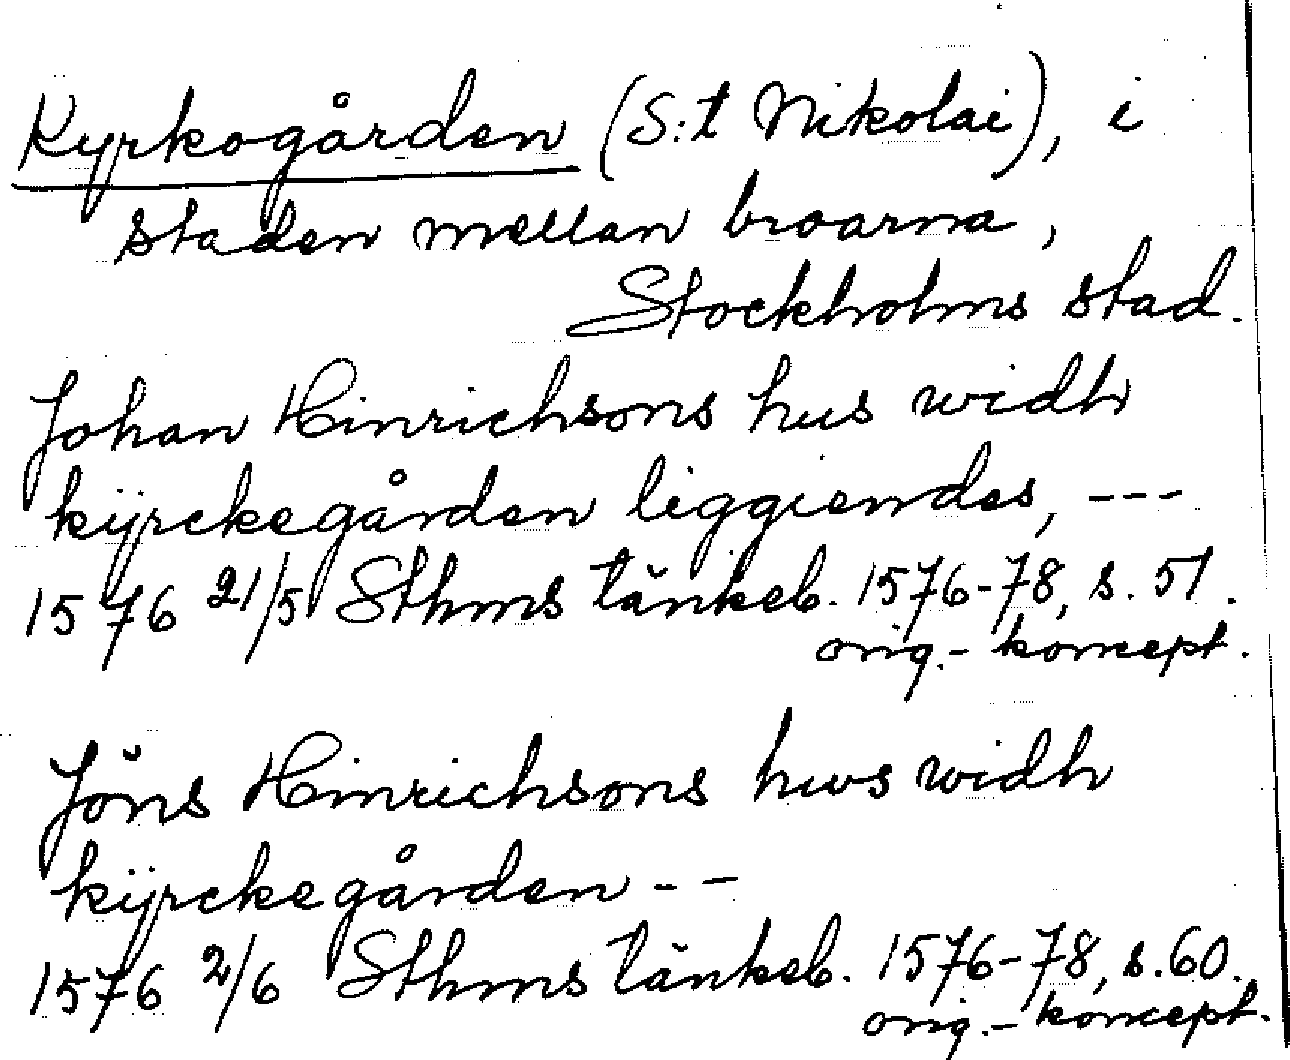 Kyrkogården (S:t Nikolai), i
staden mellan broarna,
Stockholms stad.
Johan Hinrichsons hus widh
kÿrckegården liggiendes, ---
1576 21/5 Sthms tänkeb. 1576-78, s. 51.
orig.- koncept.
Jöns Hinrichsons hws widh
kÿrckegården - -
1576 2/6 Sthms tänkeb. 1576-78, s. 60.
orig.- koncept.